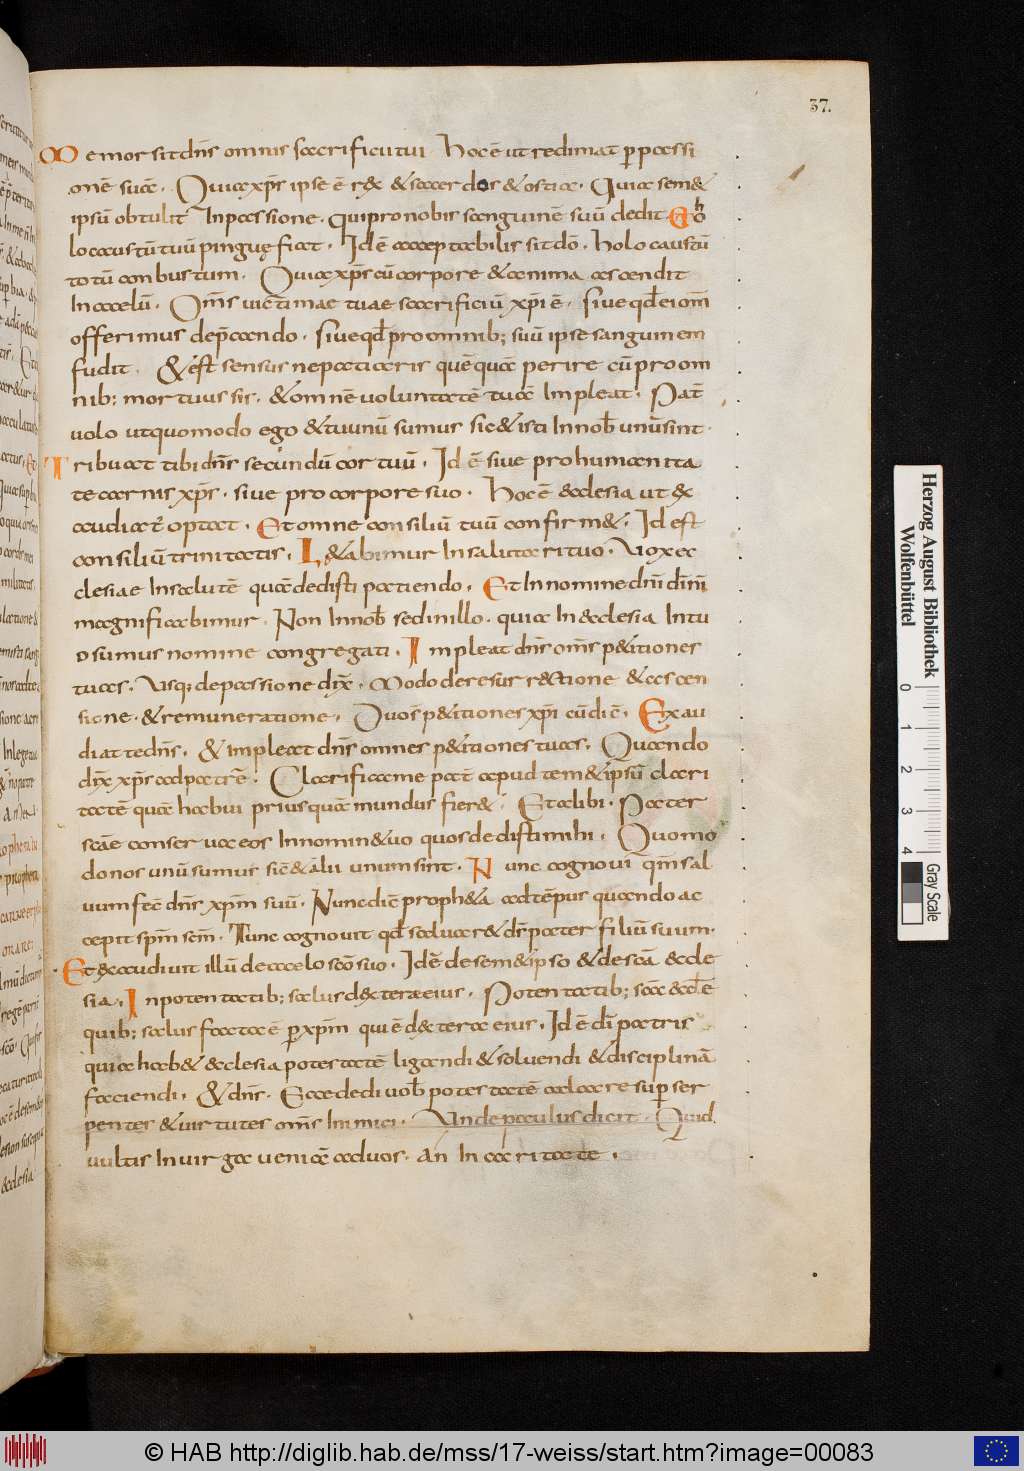 37.
Memor sit dn̄s omnis sacrificii tui Hoc ē ut redimat p̱ passi
onē suā. Quia xp̄s ipse ē rex & sacerdos & ostia. Quia sem&
ipsū obtulit In passione. qui pro nobis sanguinē suū dedit Et ho
locaustū tuū pinguę fiat. Id ē acceptabilis sit dō. holocaustū
totū combustum. Quia xp̄s cū corpore & anima ascendit
In caelū. Om̄s uictimae tuae sacrificiū xp̄i ē. siue qd̄ ei om̄s
offerimus dep̄cando. siue qd̄ pro omnib; suū ipse sanguinem
fudit. & ēst sensus ne patiaris quēquā perire cū pro om
nib; mortuus sis. & omnē uoluntatē tuā Impleat. Pat̄
uolo ut quomodo ego & tu unū sumus sic & isti In nob̄ unū sint.
Tribuat tibi dn̄s secundū cor tuū. Id ē siue pro humanita
te carnis xp̄s. siue pro corpore suo. Hoc ē ecclesia ut ex
audiat̄ optat. Et omne consiliū tuū confirm&. Id est
consiliū trinitatis. L&abimur In salutari tuo. Vox ec
clesiae In salutē quā dedisti patiendo. Et In nomine dn̄i di n̄ri
magnificabimur. Non In nob̄ sed in illo. quia In ecclesia In tu
o sumus nomine congregati. Impleat dn̄s om̄s p&itiones
tuas. Vsq; de passione dix̄. Modo de resurrectione & ascen
sione. & remuneratione. Duos p&itiones xp̄i cū diē. Exau
diat te dn̄s. & impleat dn̄s omnes p&itiones tuas. Quando
dix̄ xp̄s ad patrē. Clarifica me pat̄ apud tem&ipsū clari
tatē quā habui priusquā mundus fier&. Et alibi. Pater
scāe conserua eos In nomin& uo quos dedisti mihi. Quomo
do nos unū sumus sic & alii unum sint. Nunc cognoui qm̄ sal
uum fec̄ dn̄s xp̄m suū. Nunc diē proph&a ad tēpus quando ac
cepit spm̄ scm̄. Tunc cognouit qd̄ saluar& dr̄ pater filiū suum.
Et exaudiuit illū de caelo scō suo. Id ē de sem&ipso & de scā eccle
sia. In potentatib; salus dexterae eius. Potentatib; scāe eccl̄ ē
quib; salus facta ē p̱ xp̄m qui ē dextera eius. Id ē di patris
quia hab& ecclesia potestatē ligandi & soluendi & disciplinā
faciendi. & dn̄s. Ecce dedi uob̄ potestatē calcare sup̱ ser
pentes & uirtutes om̄s Inimici. Vnde paulus dicit. Quid
uultis In uirga ueniā ad uos. an In caritate.
Herzog August Bibliothek
Wolfenbüttel
0 1 2 3 4
Gray Scale
© HAB http://diglib.hab.de/mss/17-weiss/start.htm?image=00083